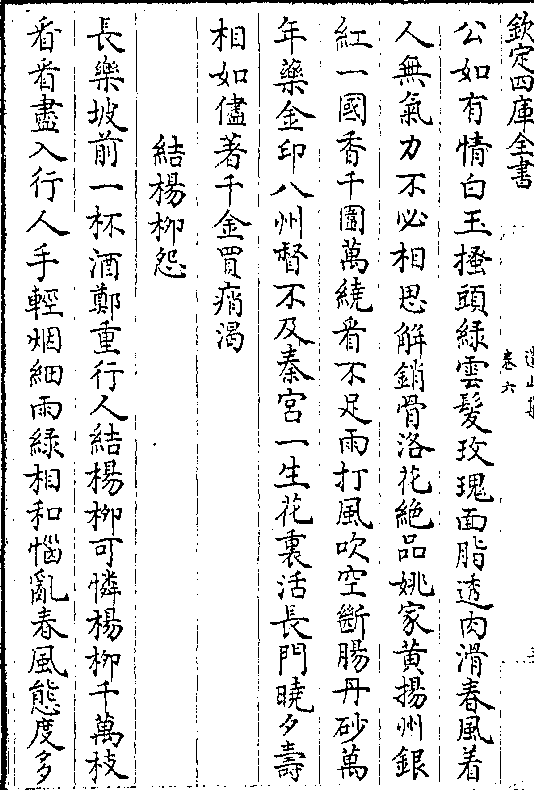 欽定四庫全書
卷六
公如有情白玉搔頭緑雲髮玫瑰面脂透肉滑春風着
人無氣力不必相思解銷骨洛花絶品姚家黄揚州銀
紅一國香千圍萬繞看不足雨打風吹空斷腸丹砂萬
年藥金印八州督不及秦宫一生花裏活長門曉夕壽
相如儘著千金買痟渴
結楊柳怨
長樂坡前一杯酒鄭重行人結楊柳可憐楊柳千萬枝
看看盡入行人手輕烟細雨緑相和惱亂春風態度多